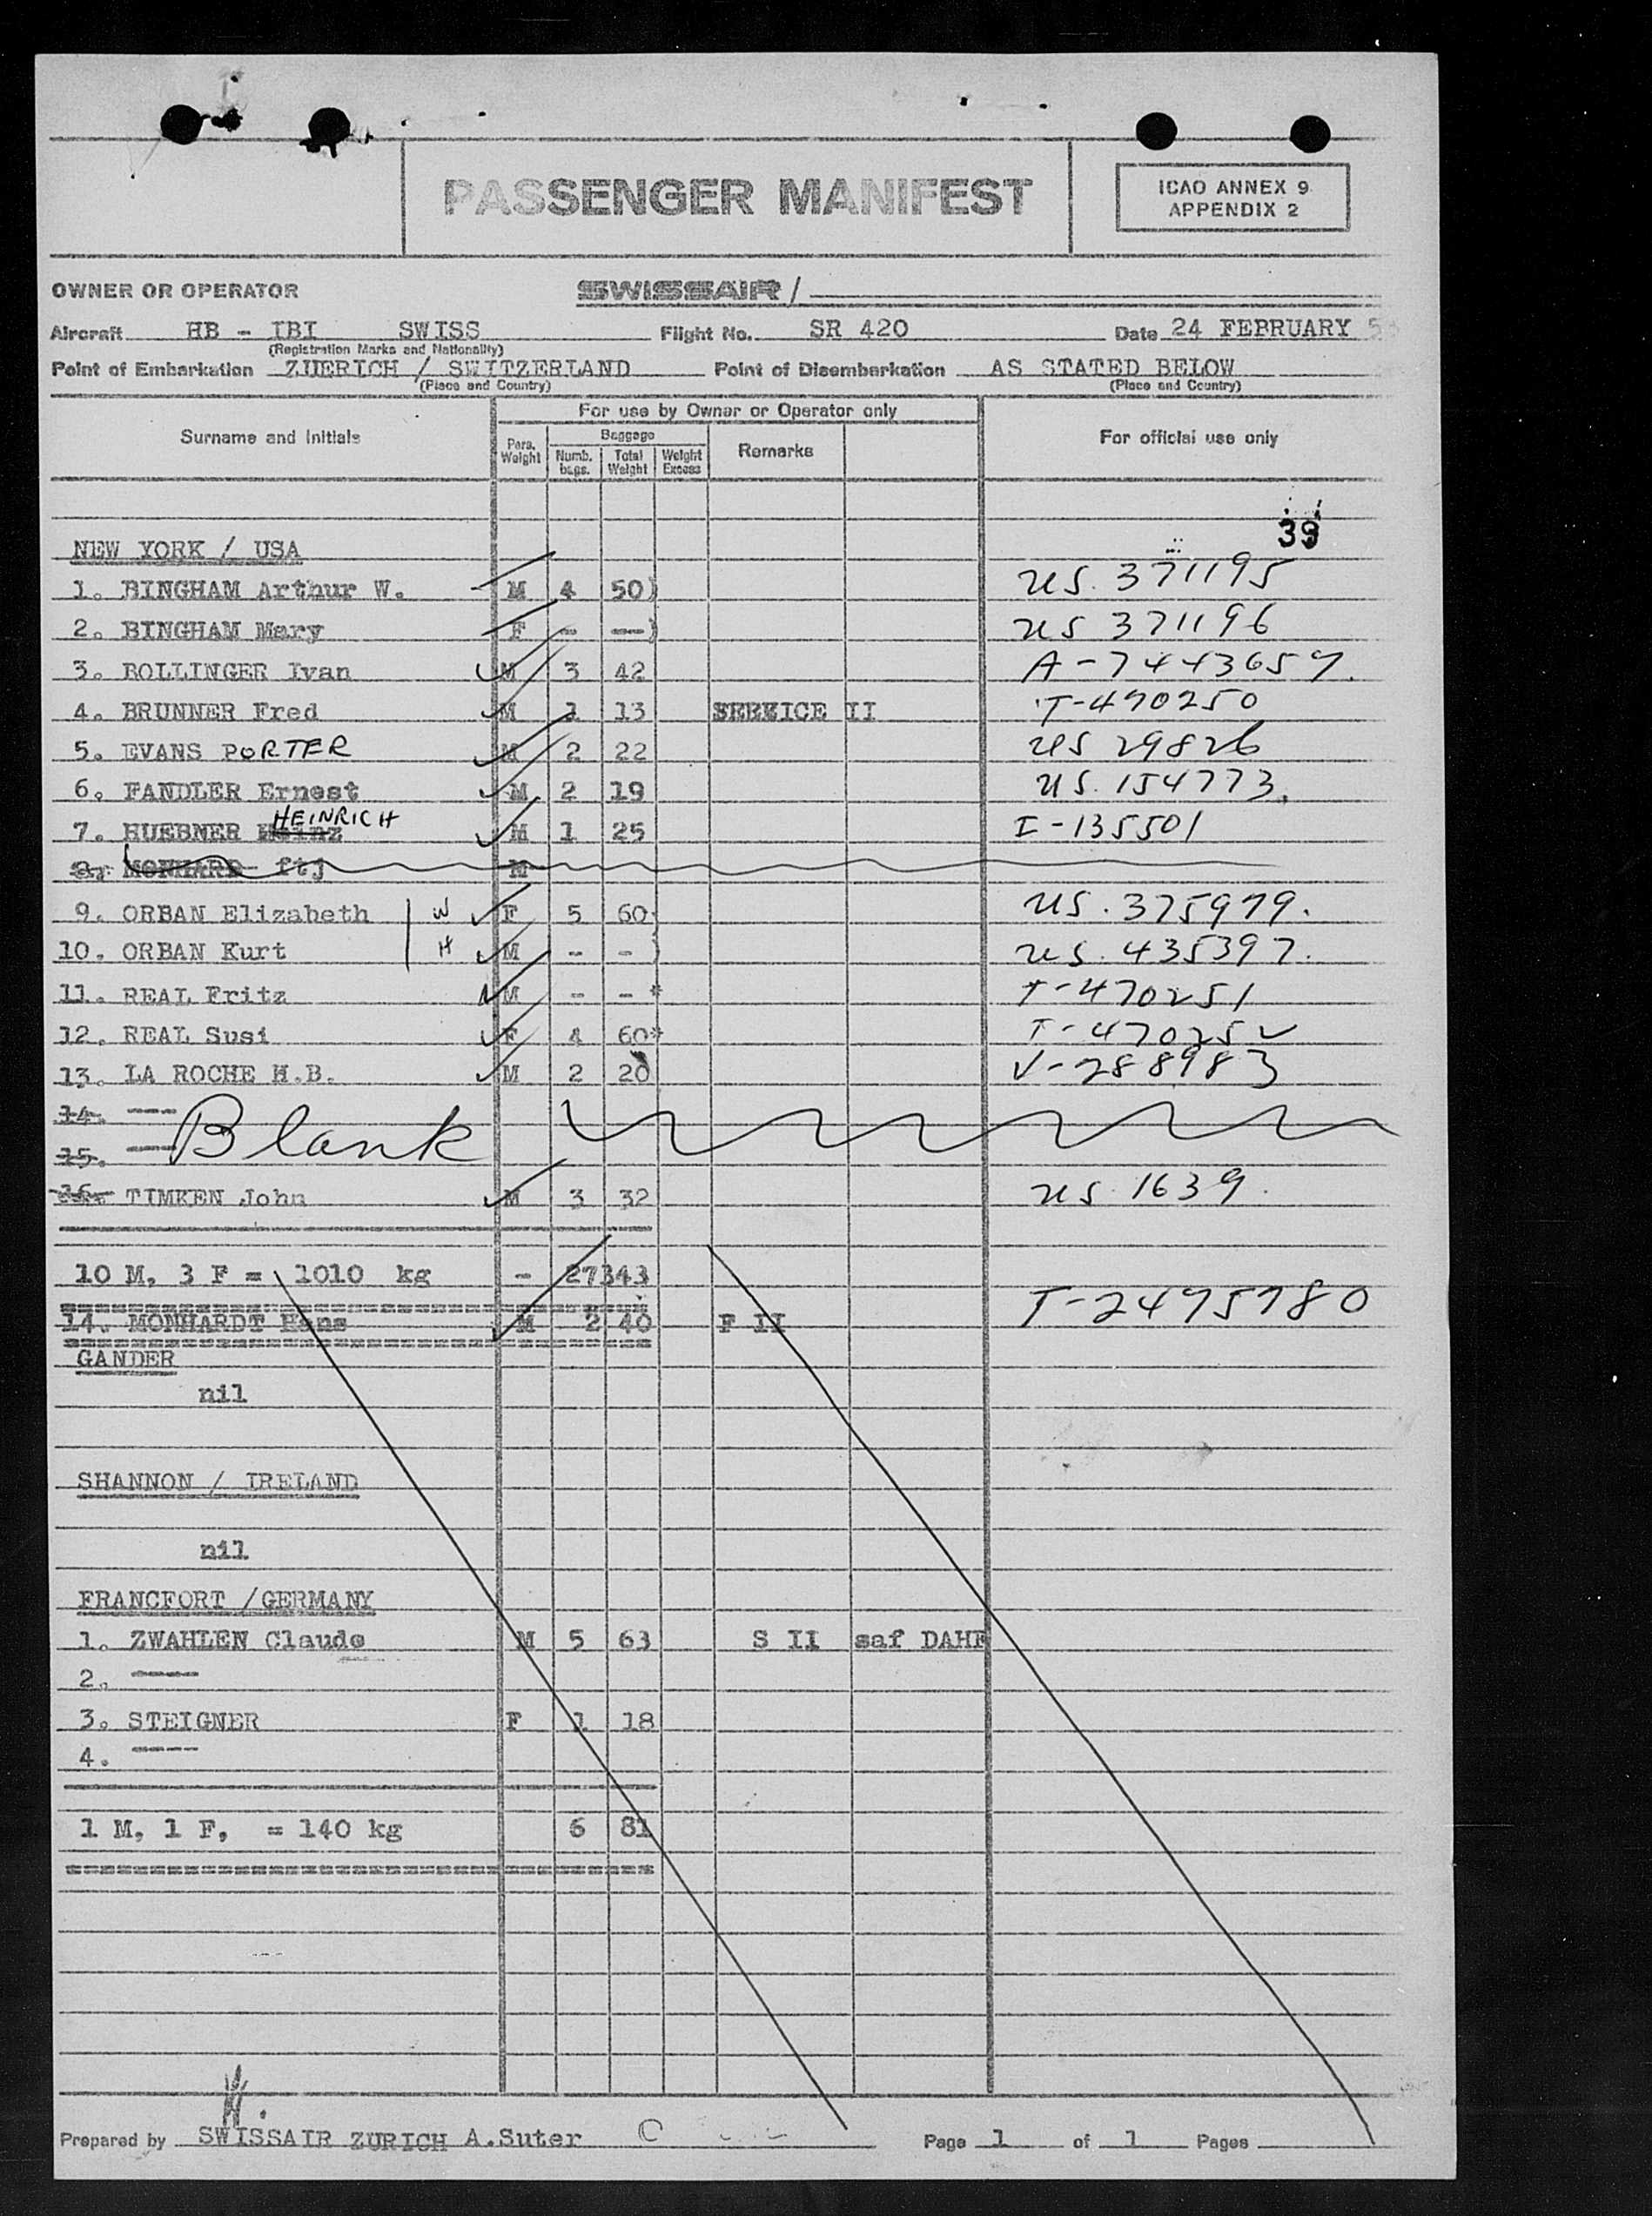 PASSENGER MANIFEST
ICAO ANNEX 9
APPENDIX 2
OWNER OR OPERATOR SWISSAIR /
Aircraft HB - IBI SWISS Flight No. SR 420 Date 24 FEBRUARY 53
(Registration Marks and Nationality)
Point of Embarkation ZUERICH / SWITZERLAND Point of Disembarkation AS STATED BELOW
(Place and Country) (Place and Country)
For use by Owner or Operator only
Surname and Initials Pers. Weight Baggage Numb. bags. Total Weight Weight Excess Remarks For official use only
39
NEW YORK / USA
1. BINGHAM Arthur W. M 4 50) US. 371195
2. BINGHAM Mary F - --) US 371196
3. BOLLINGER Ivan M 3 42 A-7443657.
4. BRUNNER Fred M 1 13 SERVICE II T-470250
5. EVANS PORTER M 2 22 US 29826
6. FANDLER Ernest M 2 19 US. 154773.
HEINRICH
7. HUEBNER Heinz M 1 25 I-135501
8. MONHARD ftj M
9. ORBAN Elizabeth W F 5 60) US. 375979.
10. ORBAN Kurt H M - - ) US. 435397.
11. REAL Fritz M - - * T-470251
12. REAL Susi F 4 60* T-470252
13. LA ROCHE H.B. M 2 20 V-288983
14. ---
Blank
15. ---
16. TIMKEN John M 3 32 US 1639.
10 M, 3 F = 1010 kg - 27 343
14. MONHARDT Hans M 2 40 F II T-2475780
GANDER
nil
SHANNON / IRELAND
nil
FRANCFORT /GERMANY
1. ZWAHLEN Claude M 5 63 S II saf DAHF
2. ----
3. STEIGNER F 1 18
4. ----
1 M, 1 F, = 140 kg 6 81
Prepared by SWISSAIR ZURICH A.Suter Page 1 of 1 Pages